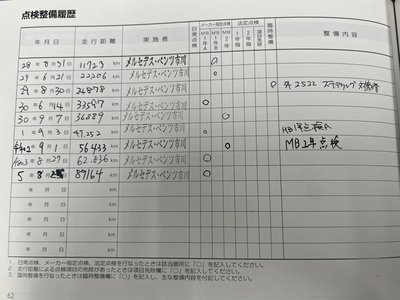 点検整備履歴
年月日 走行距離 実施者 メーカー指定点検 法定点検 臨時整備 整備内容
日常点検 MB1年A MB1年B MB2年 1年毎 2年毎 項目免除
28年 月31日 11723km メルセデス・ベンツ市川 ○
29年6月21日 22206km メルセデス・ベンツ市川
29年8月30日 24878km メルセデス・ベンツ市川 外2522 ステアリング
30年6月14日 33597km メルセデス・ベンツ市川 ○
30年9月7日 36889km メルセデス・ベンツ市川 ○
1年9月3日 47252km メルセデス・ベンツ市川 ○ MB1年点検A
2年9月1日 56433km メルセデス・ベンツ市川 ○ MB1年点検
3年8月27日 62836km メルセデス・ベンツ市川 ○
5年8月 日 89164km メルセデス・ベンツ市川 ○
年月日 km
年月日 km
年月日 km
年月日 km
年月日 km
1. 日常点検、メーカー指定点検、法定点検を行なったときは該当箇所に「○」を記入してください。
2. 走行距離による点検項目の免除があったときは項目免除欄に「○」を記入してください。
3. 臨時整備を行なったときは臨時整備欄に「○」を記入し、主な整備内容を付記してください。
62